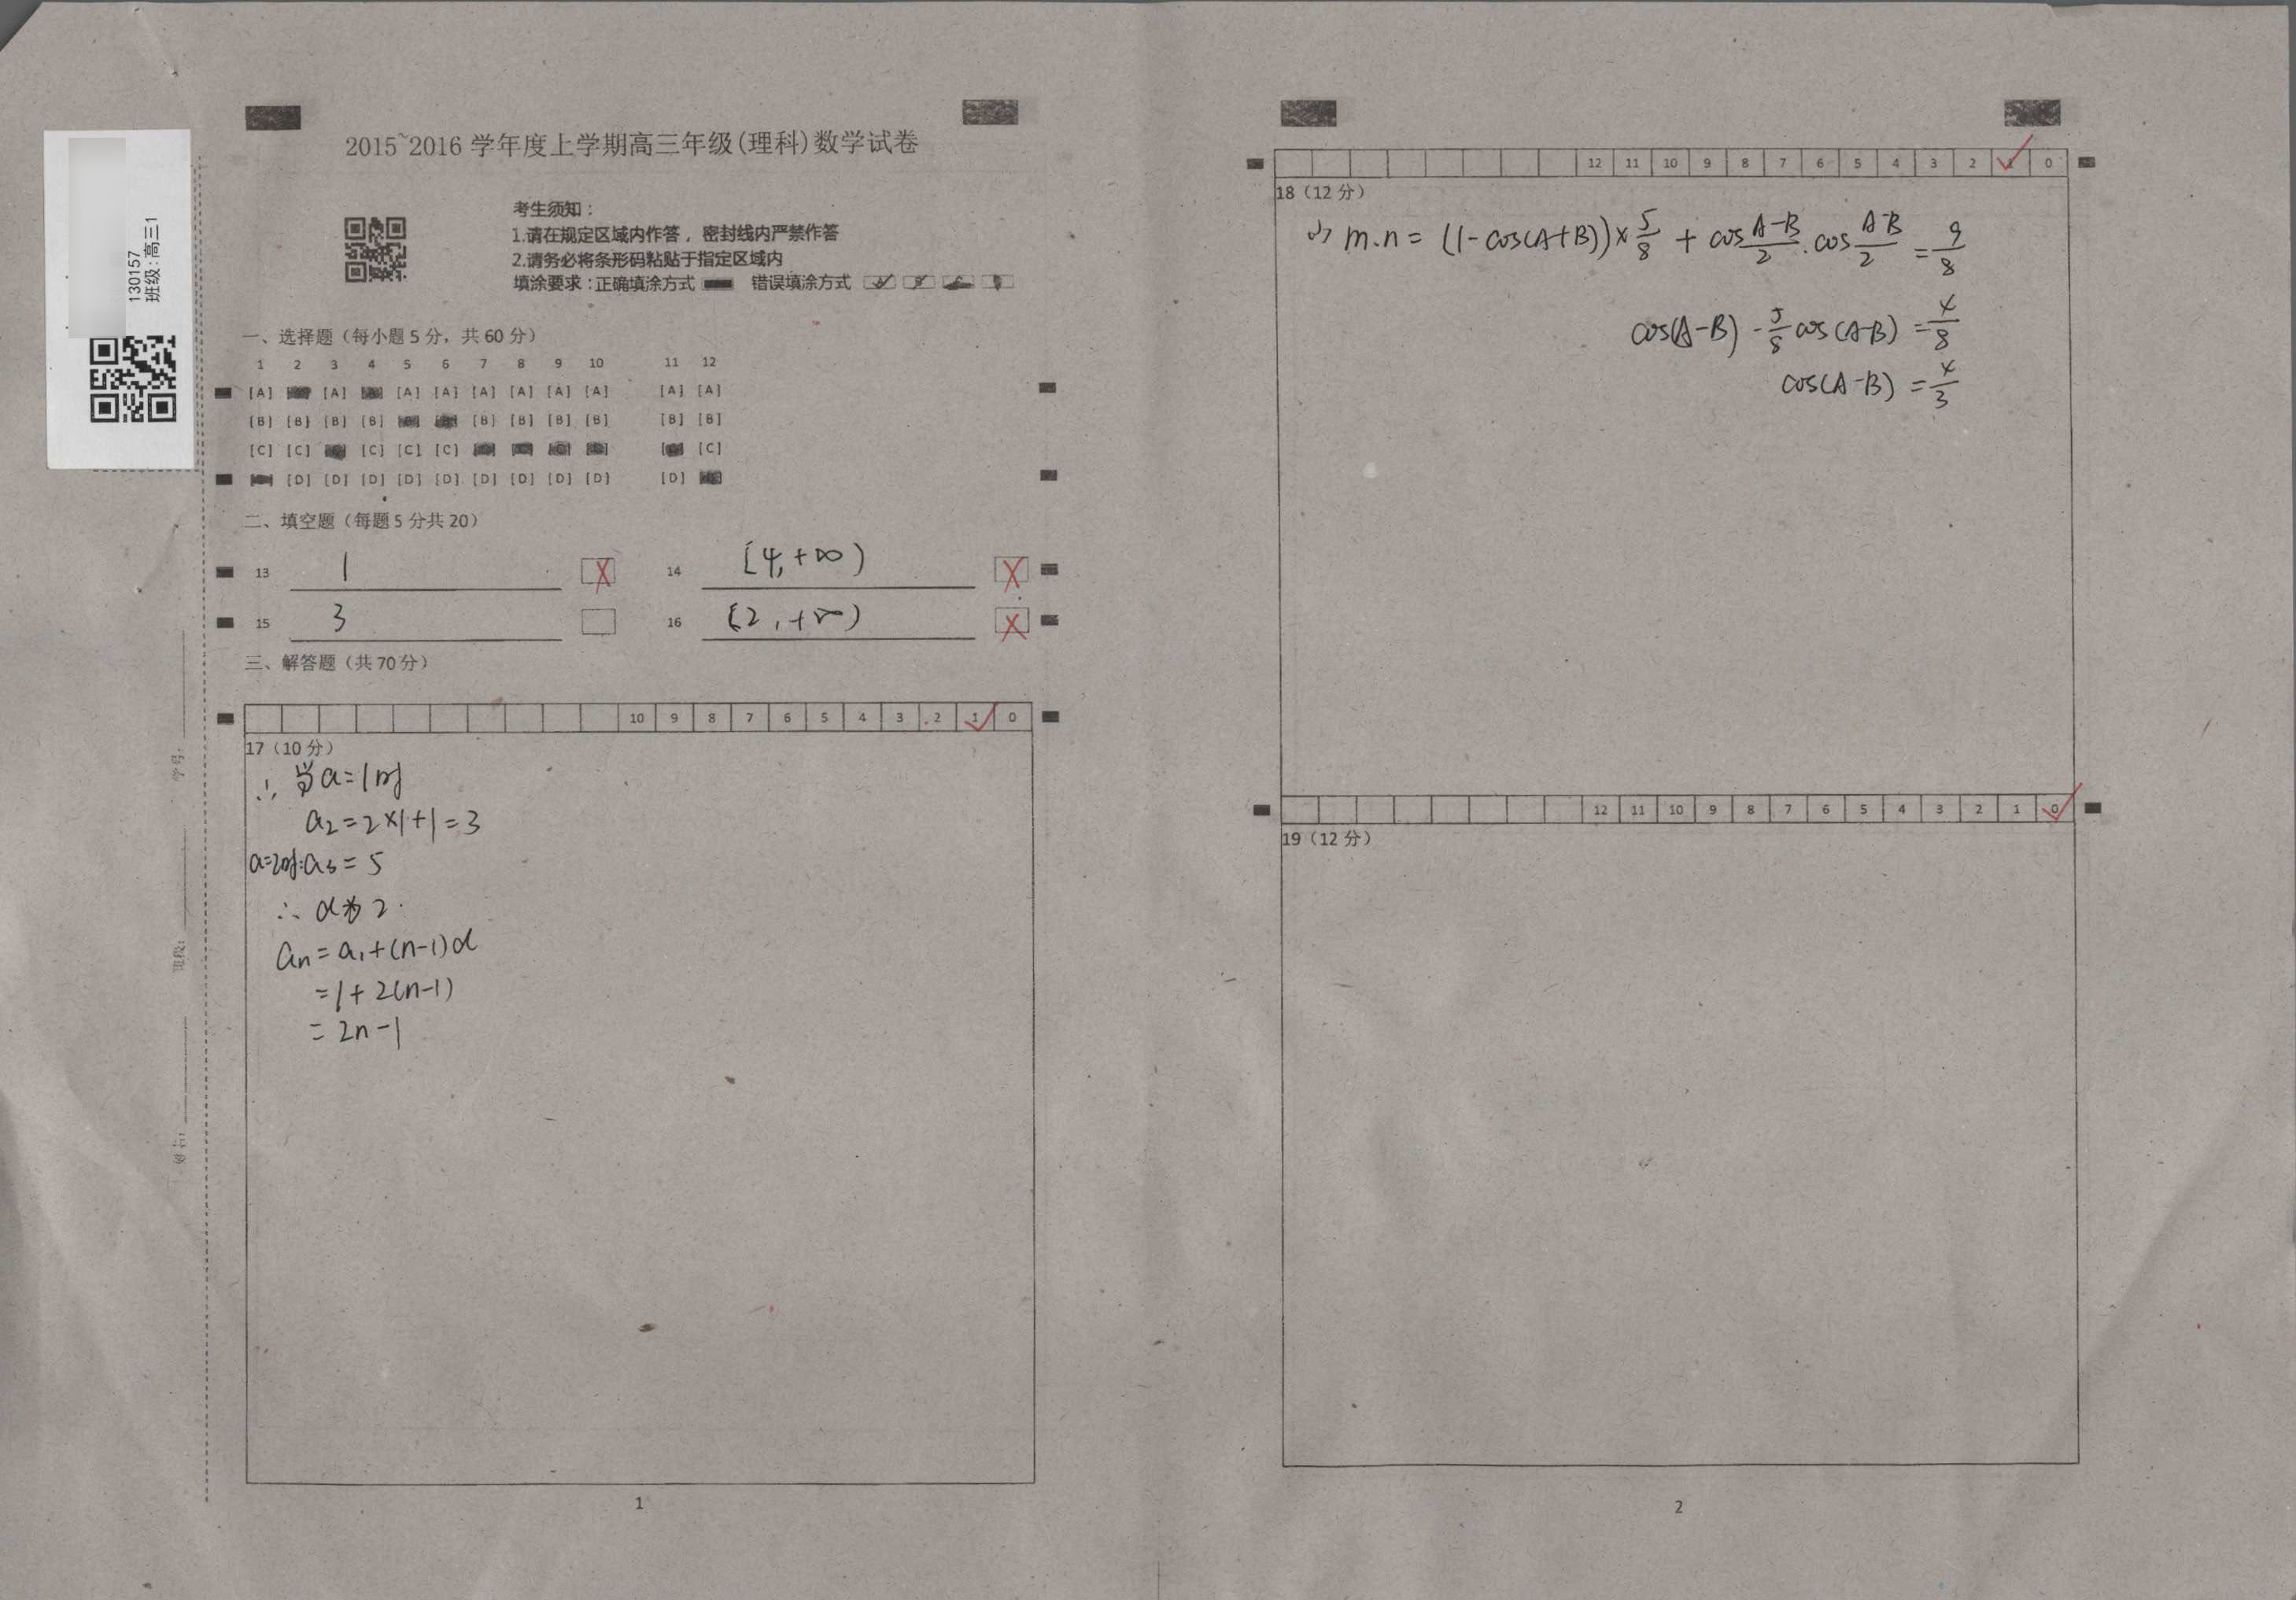 130157
班级:高三1
学号:
班级:
姓名:
2015~2016 学年度上学期高三年级(理科)数学试卷
考生须知:
1.请在规定区域内作答，密封线内严禁作答
2.请务必将条形码粘贴于指定区域内
填涂要求:正确填涂方式 错误填涂方式
一、选择题（每小题 5 分，共 60 分）
1 2 3 4 5 6 7 8 9 10 11 12
[A] [A] [A] [A] [A] [A] [A] [A] [A] [A]
[B] [B] [B] [B] [B] [B] [B] [B] [B] [B]
[C] [C] [C] [C] [C] [C]
[D] [D] [D] [D] [D] [D] [D] [D] [D] [D]
二、填空题（每题 5 分共 20）
13 1 14 [4,+∞)
15 3 16 [2,+∞)
三、解答题（共 70 分）
10 9 8 7 6 5 4 3 2 1 0
17（10 分）
∴ 当a=1时
a₂=2×1+1=3
a=2时:a₃=5
∴ d为2.
aₙ=a₁+(n-1)d
=1+2(n-1)
=2n-1
1
12 11 10 9 8 7 6 5 4 3 2 1 0
18（12 分）
m.n=(1-cos(A+B))×5/8+cos(A-B)/2.cos(A-B)/2=9/8
cos(A-B)-5/8cos(A-B)=4/8
cos(A-B)=4/3
12 11 10 9 8 7 6 5 4 3 2 1 0
19（12 分）
2